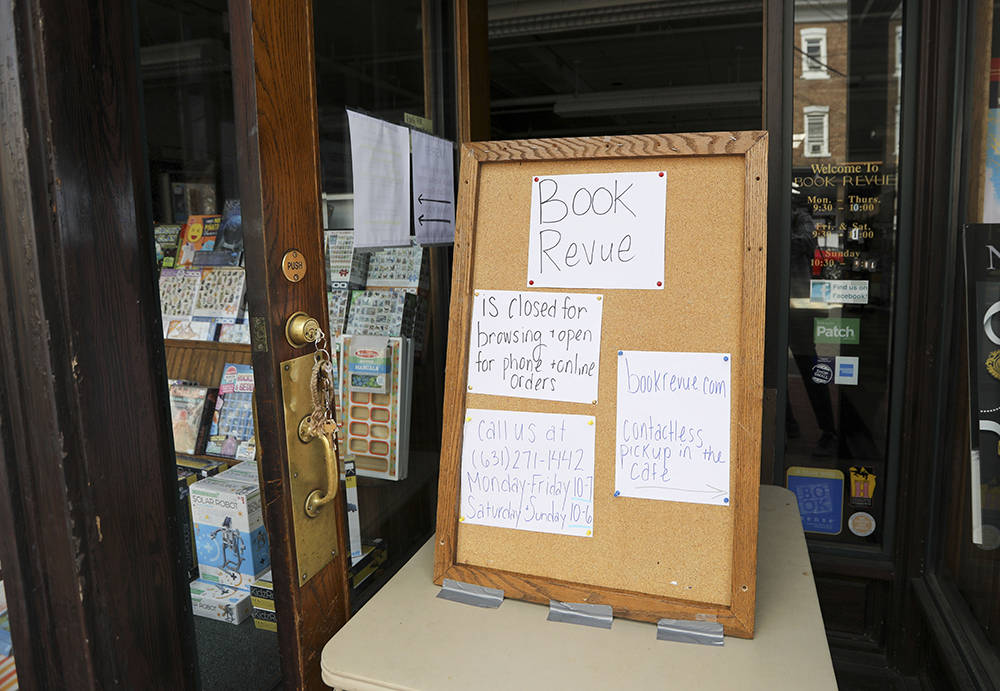 Book
Revue
is closed for
browsing + open
for phone + online
orders
call us at
(631) 271-1442
Monday-Friday 10-7
Saturday + Sunday 10-6
bookrevue.com
contactless
pickup in the
cafe
PUSH
SOLAR ROBOT
Welcome To
BOOK REVUE
Mon. - Thurs.
9:30 - 10:00
Fri. & Sat.
Sunday
Find us on
Facebook!
Patch